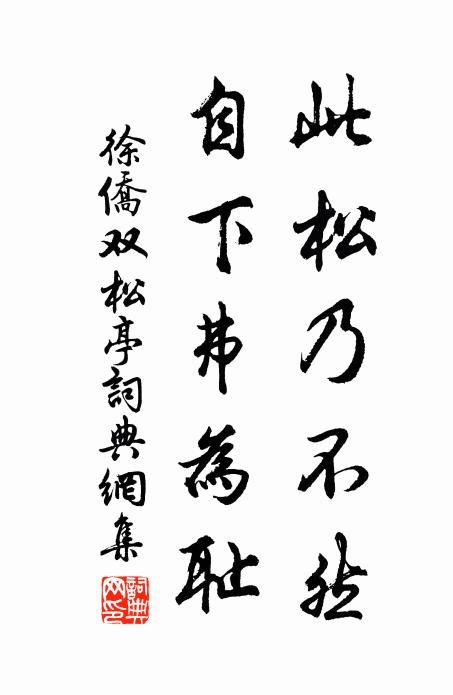 此松乃不然
自下弗為耻
徐僑双松亭詞典網集
詞典网印